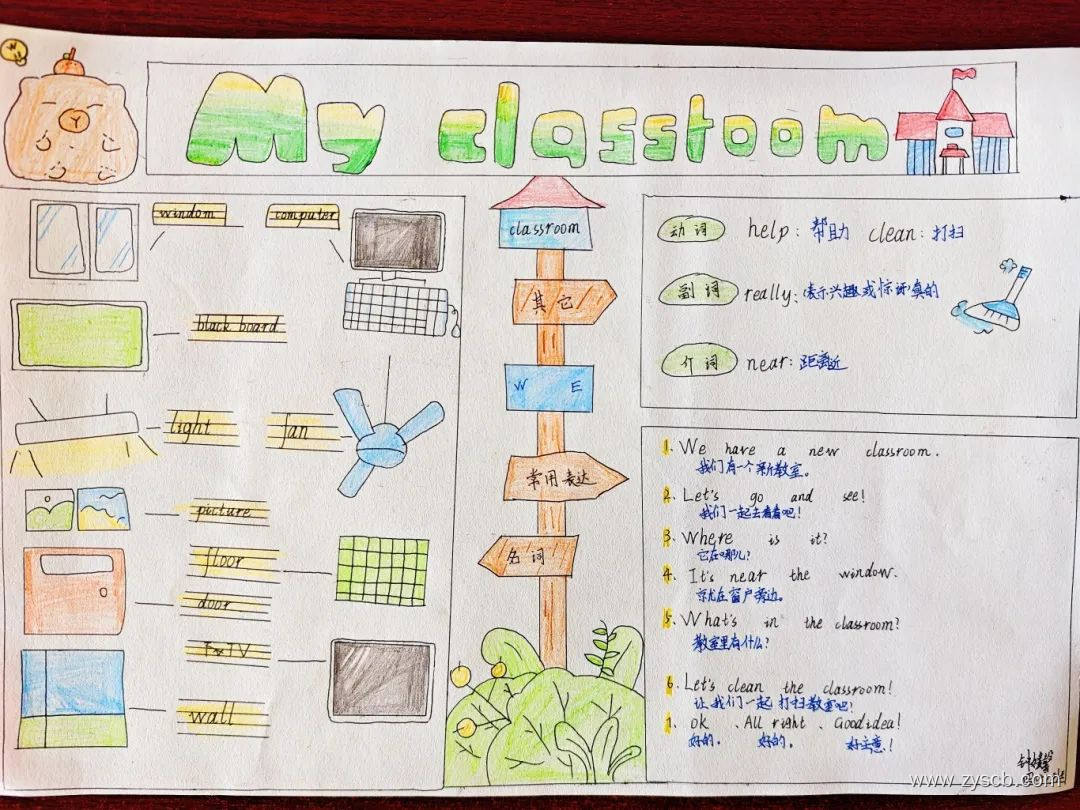 My classroom
window
computer
black board
light
fan
picture
floor
door
TV
wall
classroom
其它
W E
常用表达
名词
动词 help: 帮助 clean: 打扫
副词 really: 表示兴趣或惊讶 真的
介词 near: 距离近
1. We have a new classroom.
我们有一个新教室。
2. Let's go and see!
我们一起去看看吧!
3. Where is it?
它在哪儿?
4. It's near the window.
它就在窗户旁边。
5. What's in the classroom?
教室里有什么?
6. Let's clean the classroom!
让我们一起打扫教室吧!
7. ok 、All right 、Good idea!
好的。 好的。 好主意!
www.zyscb.com